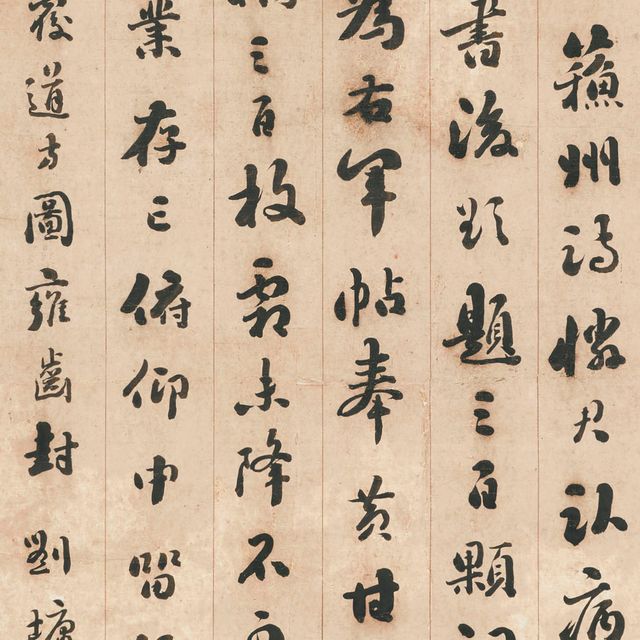 蘇州詩憐君臥病
書後欲題三百顆
為右軍帖奉黃甘
三百枚霜未降不
業存亡俯仰中留
道士圖雍齒封劉墉